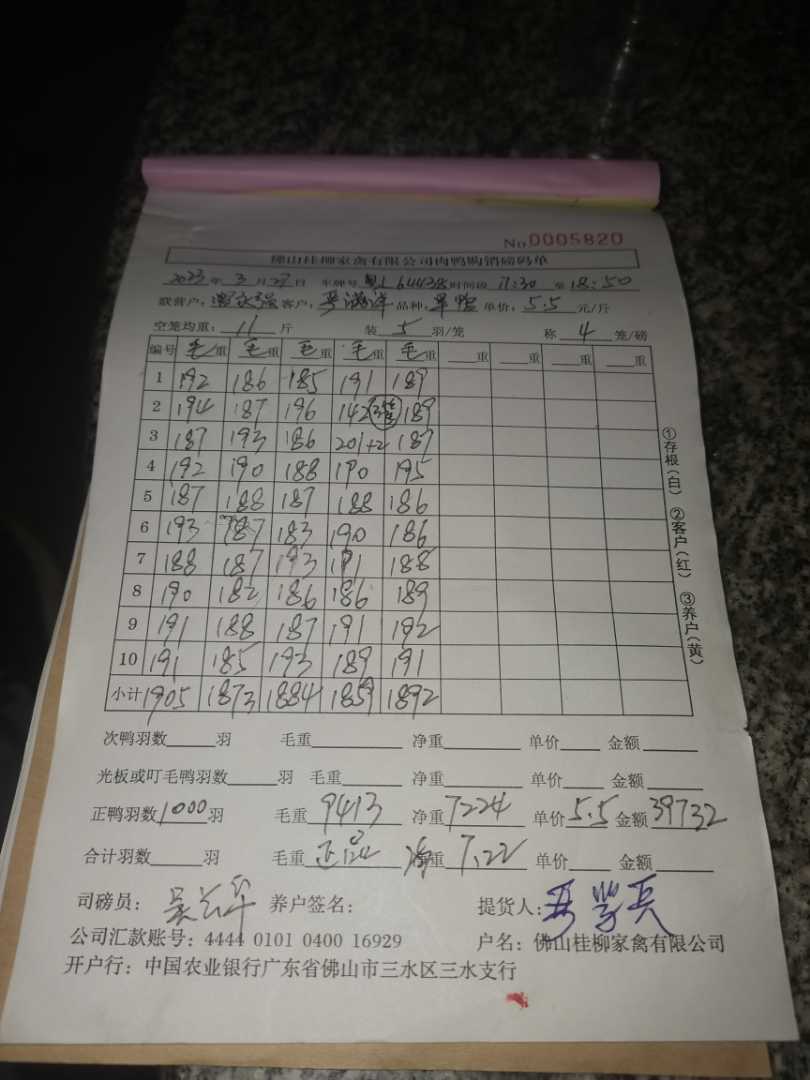 No 0005820
佛山桂柳家禽有限公司肉鸭购销磅码单
2023年 3月27日 车牌号 64438 时间段 17:30 至 18:50
联营户: 客户: 品种: 单价: 5.5 元/斤
空笼均重: 11 斤 装 5 羽/笼 称 4 笼/磅
编号 毛重 毛重 毛重 毛重 毛重 重 重 重 重
1 192 186 185 191 189
2 194 187 196 142 189
3 187 193 186 201+2 187
4 192 190 188 190 195
5 187 188 187 188 186
6 193 187 183 190 186
7 188 187 193 191 188
8 190 182 186 186 189
9 191 188 187 191 192
10 191 185 193 189 191
小计 1905 1873 1884 1859 1892
①存根(白) ②客户(红) ③养户(黄)
次鸭羽数 羽 毛重 净重 单价 金额
光板或叮毛鸭羽数 羽 毛重 净重 单价 金额
正鸭羽数 1000 羽 毛重 9413 净重 7224 单价 5.5 金额 39732
合计羽数 羽 毛重 重 7.22 单价 金额
司磅员: 养户签名: 提货人:
公司汇款账号: 4444 0101 0400 16929 户名: 佛山桂柳家禽有限公司
开户行: 中国农业银行广东省佛山市三水区三水支行